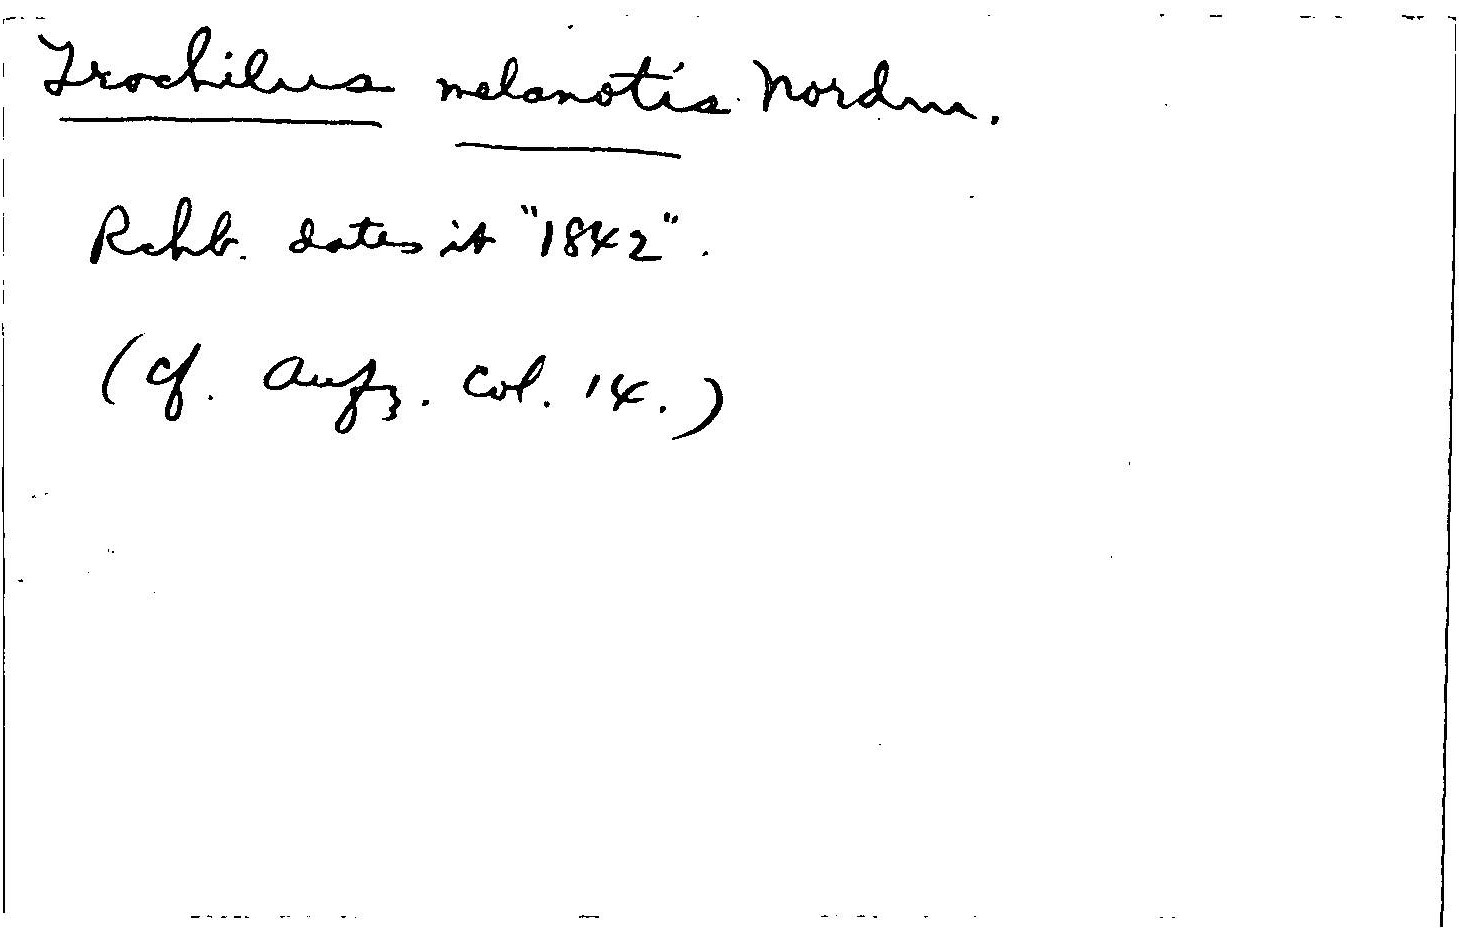 Trochilus melanotis Nordm.
Rchb. dates it "1842".
(cf. Aufz. Col. 14.)